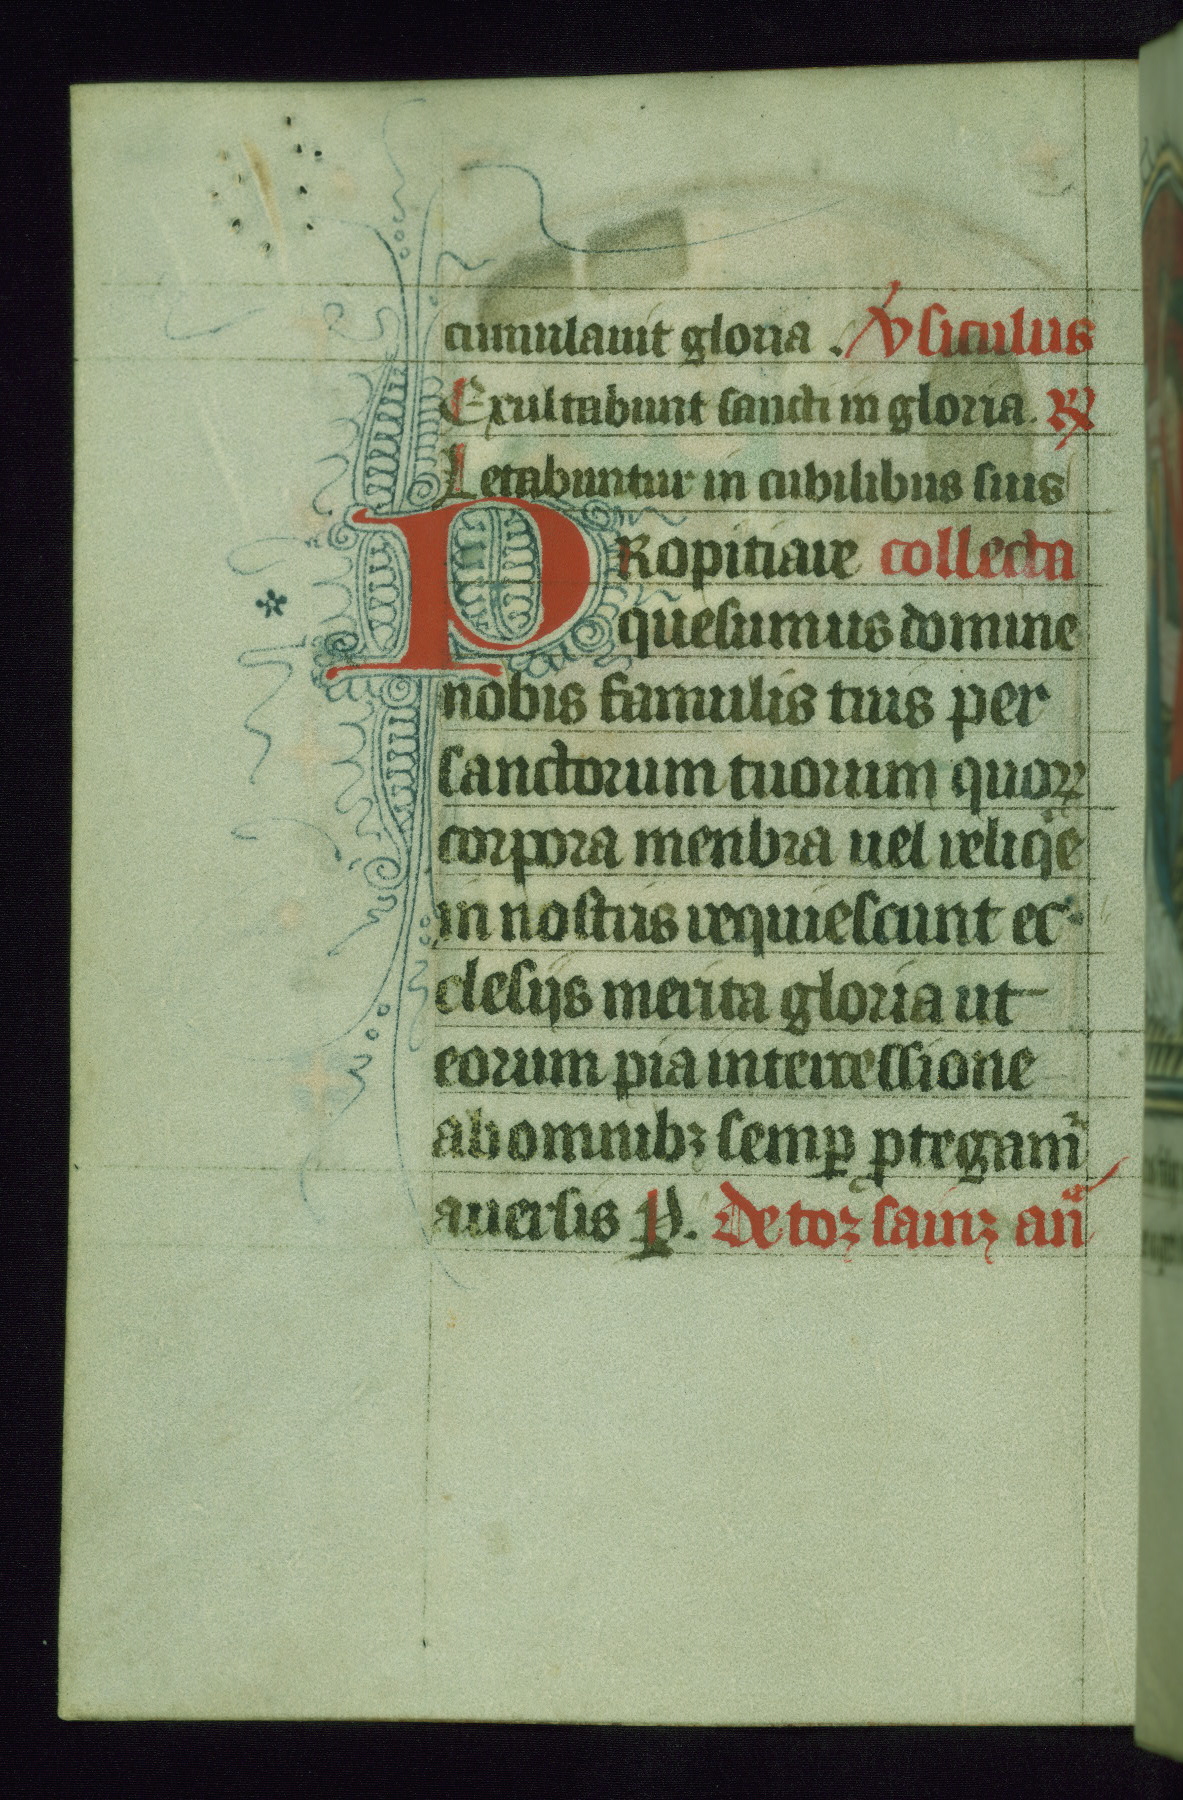 cumulauit gloria . V̓siculus
Exultabunt sancti in gloria. R̸
Letabuntur in cubilibus suis
PRopitiare collecta
quesumus domine
nobis famulis tuis per
sanctorum tuorum quoꝝ
corpora menbra uel reliq̄e
in nostris requiescunt ec-
clesijs merita gloria ut
eorum pia intercessione
ab omnibꝫ semꝑ ꝓtegam̄
auersis P. De toz sainz an̄